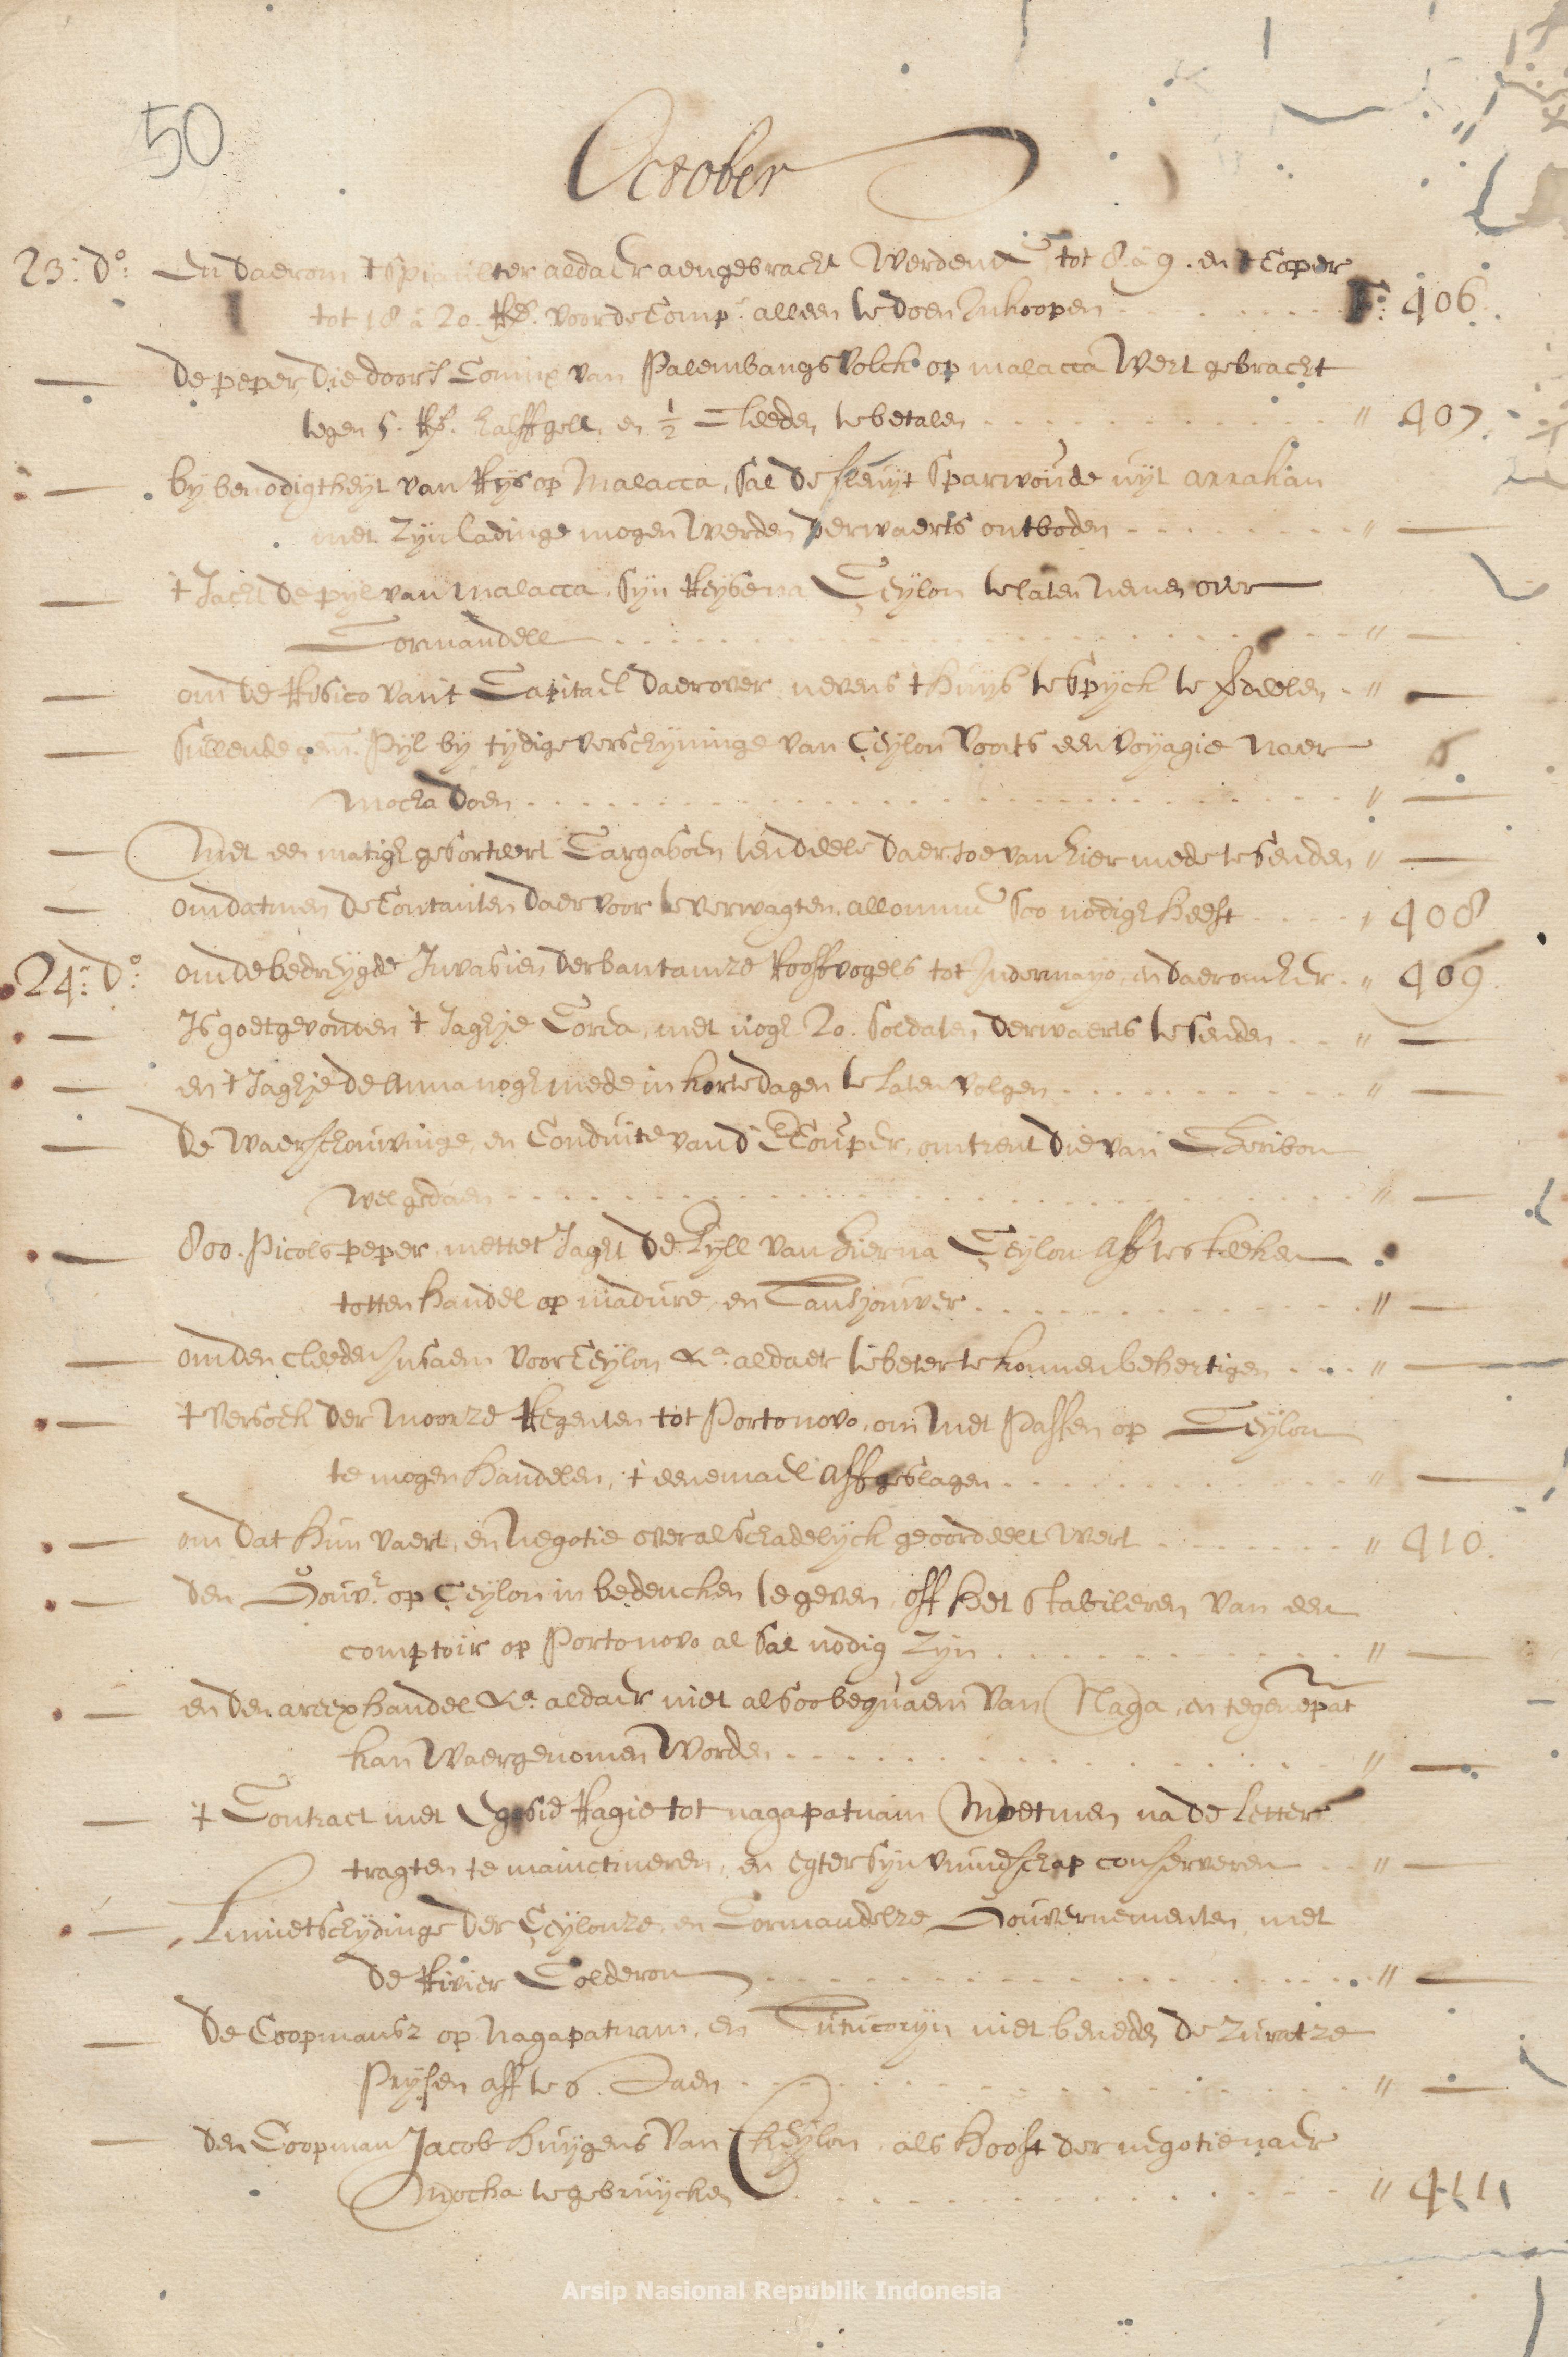 50
October
23: d.o: En daerom t spiaulter aldaer aengebracht werdende tot 8 à 9. en t Coper
tot 18 à 20. Rds. voor de Comp.e alleen te doen Inkoopen . . . . f.o: 406.
— de peper, die door 's Coninx van Palembangs volck op malacca Wert gebracht
tegen 5. Rds. halff gelt, en 1/2 Cleeden te betalen . . . . " 407.
— by benodigtheyt van Rys op Malacca, sal de fluyt Sparwoude uyt arrakan
met zyn ladinge mogen werden derwaerts ontboden . . . . " —
— t Jacht de pyl van malacca, syn Reyse na Ceylon te laten nemen over
Cormandell . . . . " —
— om de Risico van't Capitael daerover, nevens t huys te Spyck te verdeelen . " —
— Sullende gem. Pyl by tydige verschyninge van Ceylon voorts een voyagie naer
Mocha doen . . . . " —
— Met een matigh gesorteert Cargasoen ten deele daer toe van hier mede te senden " —
— omdatmen de Contanten daer voor te verwagten, allomme soo nodigh heeft . . . . " 408
24: d.o: om de bedreygde Invasien der bantamze Rooffvogels tot Indermayo, en daeromher . " 409.
— Is goetgevonden t Jaghje Corea, met nogh 20. soldaten derwaerts te senden . . " —
— en t Jaghje de Anna nogh mede in korte dagen te laten volgen . . . . " —
— de waerschouwinge, en Conduite van d' E Couper, omtrent die van Cheribon
wel gedaen . . . . " —
— 800. Picols peper, mettet Jagt de Pyll van hier na Ceylon aff te steeken
totten handel op madure, en Tansjouwer . . . . " —
— om den cleeden Insaem voor Ceylon &.a aldaer te beter te konnen behertigen . . . " —
— t versoek der moorze Regenten tot Portonovo, om met Passen op Ceylon
te mogen handelen, t eenemael affgeslagen . . . . " —
— om dat hun vaert, en negotie overal schadelyck geoordeelt wert . . . . " 410.
— den Gouv.r op Ceylon in bedencken te geven, off het stabileren van een
comptoir op Portonovo al sal nodig zyn . . . . " —
— en den areex handel &.a aldaer niet alsoo bequaem van Naga, en tegenepat.m
kan waergenomen worden . . . . " —
— t Contract met Egosie Ragie tot nagapatnam moetmen na de letter
tragten te mainctineren, en egter syn vrundschap conserveren . . " —
— Limietscheydinge der Ceylonze, en Cormandelze Gouvernementen, met
de Rivier Colderon . . . . " —
— de Coopmansz op Nagapatnam, en Tutucoryn niet beneden de zuratze
Prysen aff te s. Daen . . . . " —
— den Coopman Jacob Huygens van Ceylon, als hooft der negotie naer
Mocha te gebruycken . . . . " 411
Arsip Nasional Republik Indonesia